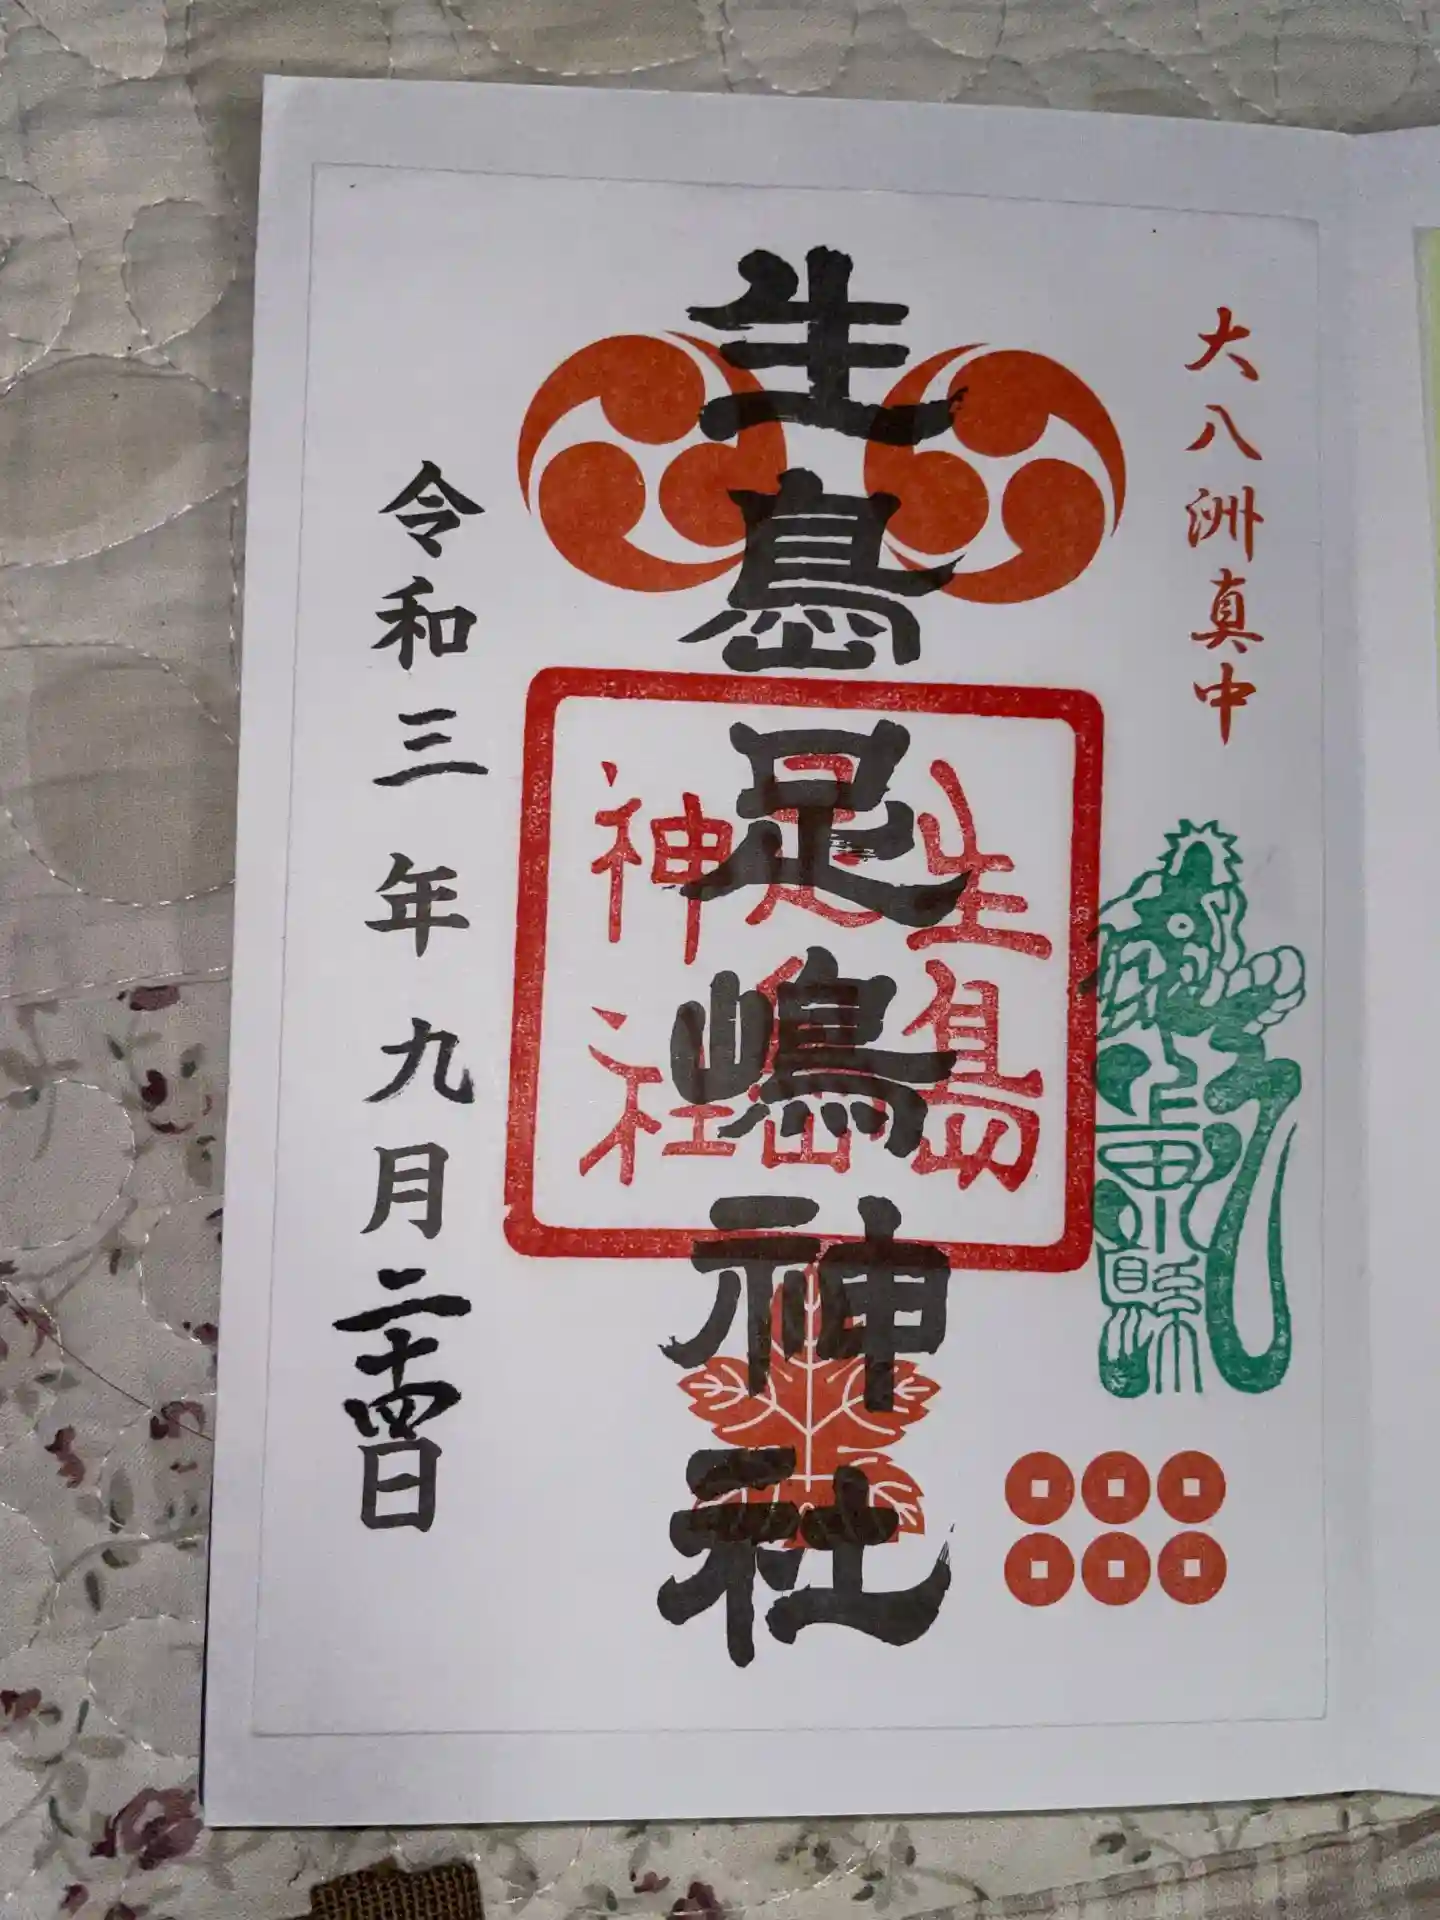 大八洲真中
生島足嶋神社
生島
足島
神社
令和三年九月二十四日